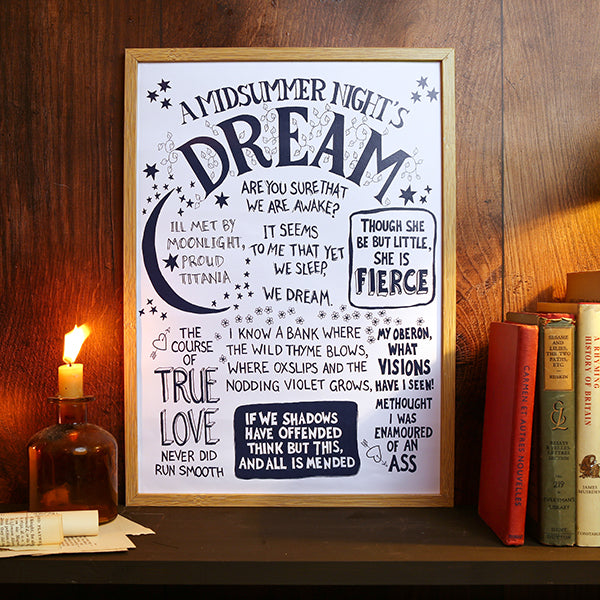 A MIDSUMMER NIGHT'S
DREAM
ARE YOU SURE THAT
WE ARE AWAKE?
IT SEEMS
TO ME THAT YET
WE SLEEP,
WE DREAM.
ILL MET BY
MOONLIGHT,
PROUD
TITANIA
THOUGH SHE
BE BUT LITTLE,
SHE IS
FIERCE
THE
COURSE
OF
TRUE
LOVE
NEVER DID
RUN SMOOTH
I KNOW A BANK WHERE
THE WILD THYME BLOWS,
WHERE OXSLIPS AND THE
NODDING VIOLET GROWS,
MY OBERON,
WHAT
VISIONS
HAVE I SEEN!
METHOUGHT
I WAS
ENAMOURED
OF AN
ASS
IF WE SHADOWS
HAVE OFFENDED
THINK BUT THIS,
AND ALL IS MENDED
CARMEN ET AUTRES NOUVELLES
SESAME AND
LILIES,
THE TWO
PATHS
RUSKIN
ESSAYS
219
EVERYMAN'S
LIBRARY
A RHYMING
HISTORY OF BRITAIN
JAMES
MUIRDEN
CONSTABLE